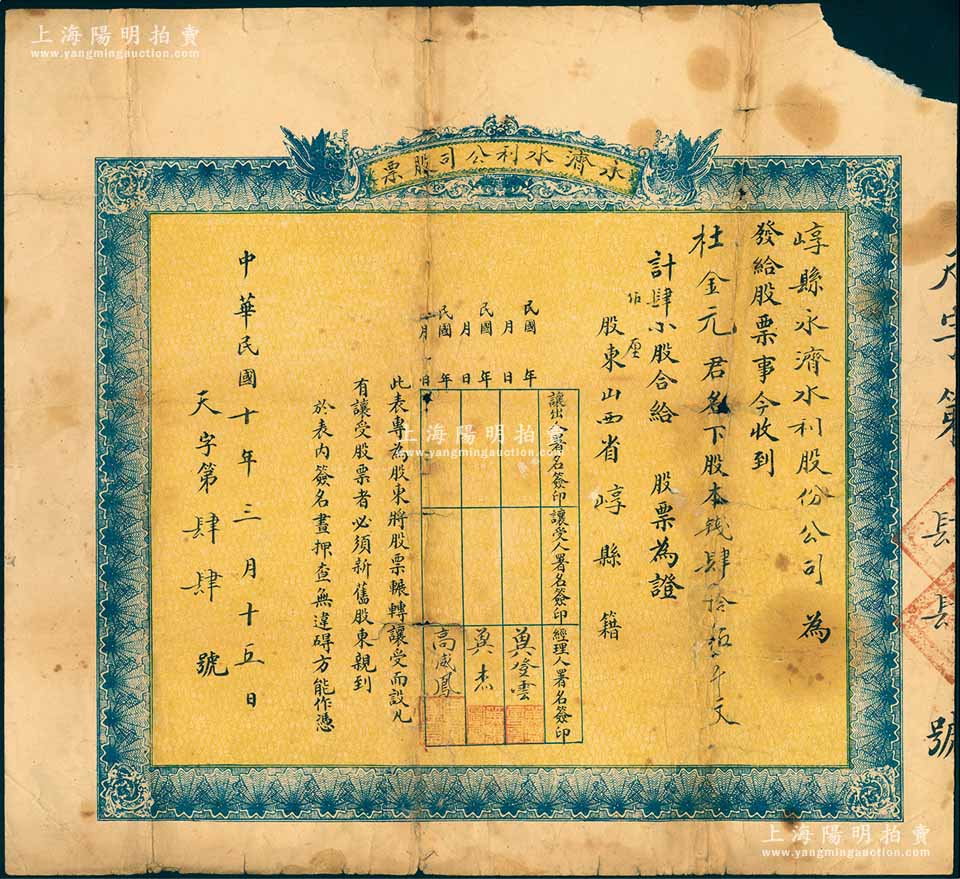 上海陽明拍賣
www.yangmingauction.com
永濟水利公司股票
崞縣永濟水利股份公司為
發給股票事今收到
杜金元君名下股本錢肆拾伍千文
計肆小股伍厘合給股票為證
股東山西省崞縣籍
讓出人署名簽印
讓受人署名簽印
經理人署名簽印
民國 年 月 日
民國 年 月 日
民國 年 月 日
杰
高咸鳳
此表專為股東將股票輾轉讓受而設凡
有讓受股票者必須新舊股東親到
於表內簽名畫押查無違碍方能作憑
中華民國十年三月十五日
天字第肆肆號
天字第肆肆號
上海陽明拍賣
www.yangmingauction.com
上海陽明拍賣
www.yangmingauction.com